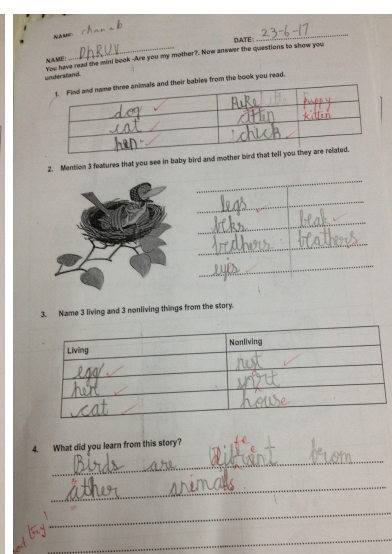 NAME: chanab
DATE: 23-6-17
NAME: DhRUV
You have read the mini book -Are you my mother?. Now answer the questions to show you
understand.
1. Find and name three animals and their babies from the book you read.
dog puppy
cat kitten
hen chick
2. Mention 3 features that you see in baby bird and mother bird that tell you they are related.
legs
beks beak
fedhers feathers
eyis
3. Name 3 living and 3 nonliving things from the story.
Living Nonliving
egg nest
hen
cat house
4. What did you learn from this story?
Birds are from
other animals